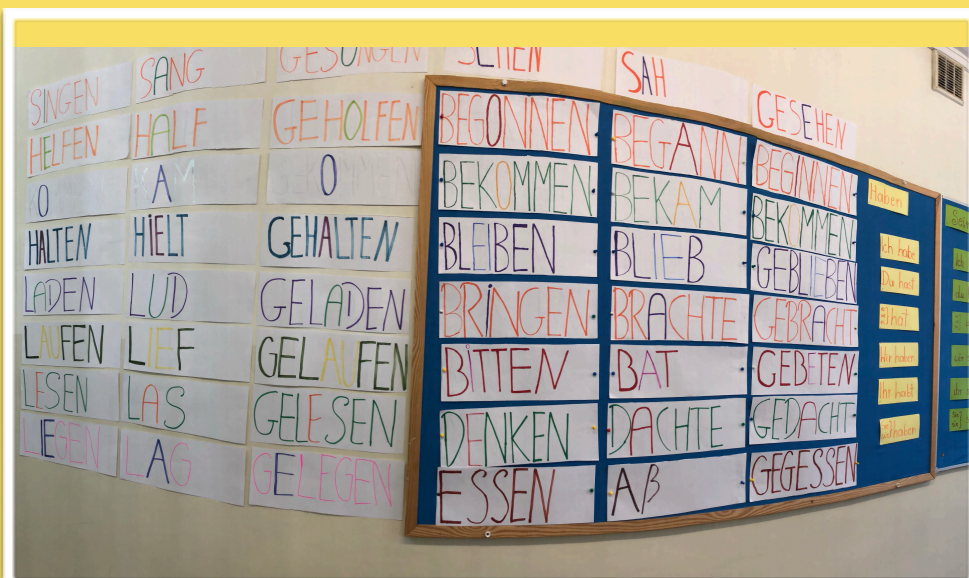 SINGEN SANG GESUNGEN
HELFEN HALF GEHOLFEN
O KAM O
HALTEN HiELT GEHALTEN
LADEN LUD GELADEN
LAUFEN LIEF GELAUFEN
LESEN LAS GELESEN
LIEGEN LAG GELEGEN
SEHEN SAH GESEHEN
BEGONNEN BEGANN BEGINNEN
BEKOMMEN BEKAM BEKOMMEN
BLEIBEN BLIEB GEBLIEBEN
BRiNGEN BRACHTE GEBRACHT
BiTTEN BAT GEBETEN
DENKEN DACHTE GEDACHT
ESSEN Aß GEGESSEN
Haben
Ich habe
Du hast
hat
Wir haben
Ihr habt
haben
du
wir